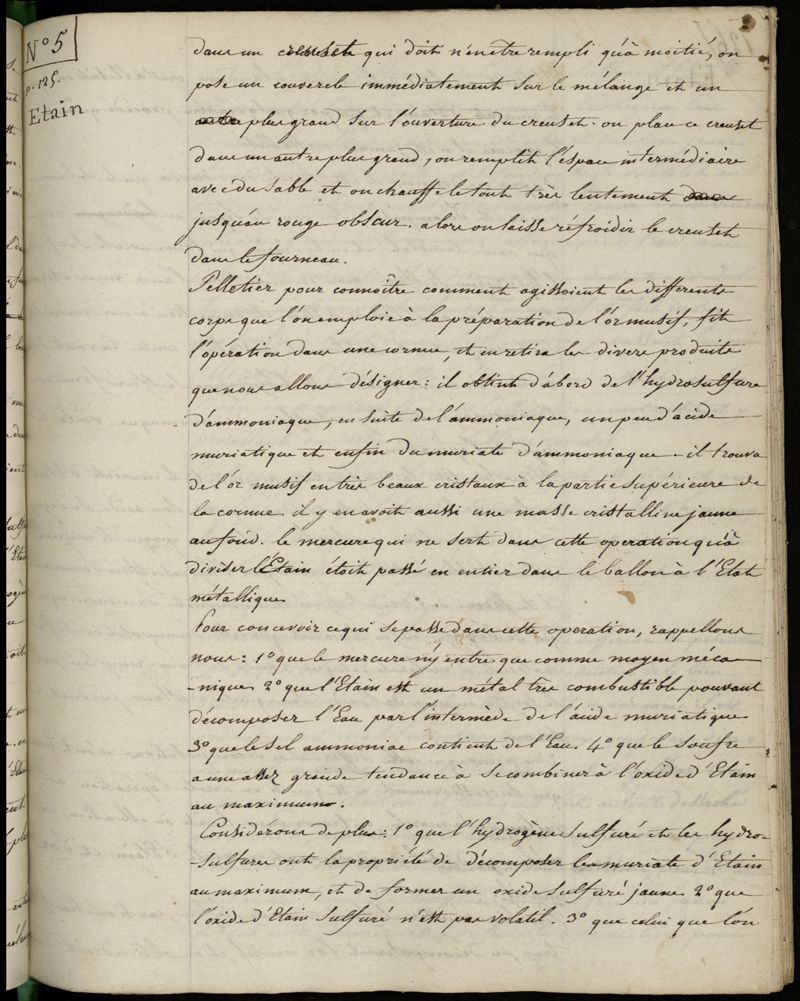 N° 5
p. 125.
Etain
dans un creuset qui doit n'en etre rempli qu'à moitié, on
pose un couvercle immédiatement sur le mélange et un
autre plus grand sur l'ouverture du creuset. on place ce creuset
dans un autre plus grand, on remplit l'éspace intermédiaire
avec du sable et on chauffe le tout très lentement dans
jusqu'au rouge obscur. alors on laisse réfroidir le creuset
dans le fourneau.
Pelletier pour connoître comment agissoient les differents
corps que l'on emploie à la préparation de l'or musif, fit
l'opération dans une cornue, et en retira les divers produits
que nous allons désigner: il obtint d'abord de l'hydrosulfure
d'ammoniaque, en suite de l'ammoniaque, un peu d'acide
muriatique et enfin du muriate d'ammoniaque. il trouva
de l'or musif en très beaux cristaux à la partie supérieure de
la cornue. il y en avoit aussi une masse cristalline jaune
au fond. le mercure qui ne sert dans cette operation qu'à
diviser l'Etain étoit passé en entier dans le ballon à l'Etat
métallique.
Pour concevoir ce qui se passe dans cette operation, rappellons
nous: 1° que le mercure n'y entre que comme moyen méca
-nique 2° que l'Etain est un métal très combustible pouvant
décomposer l'Eau par l'intermède de l'acide muriatique
3° que le sel ammoniac contient de l'Eau. 4° que le soufre
a une assez grande tendance à se combiner à l'oxide d'Etain
au maximum.
Considérons de plus: 1° que l'hydrogène sulfuré et les hydro-
-sulfures ont la propriété de décomposer les muriate d'Etain
au maximum, et de former un oxide sulfuré jaune 2° que
l'oxide d'Etain sulfuré n'est pas volatil. 3° que celui que l'on